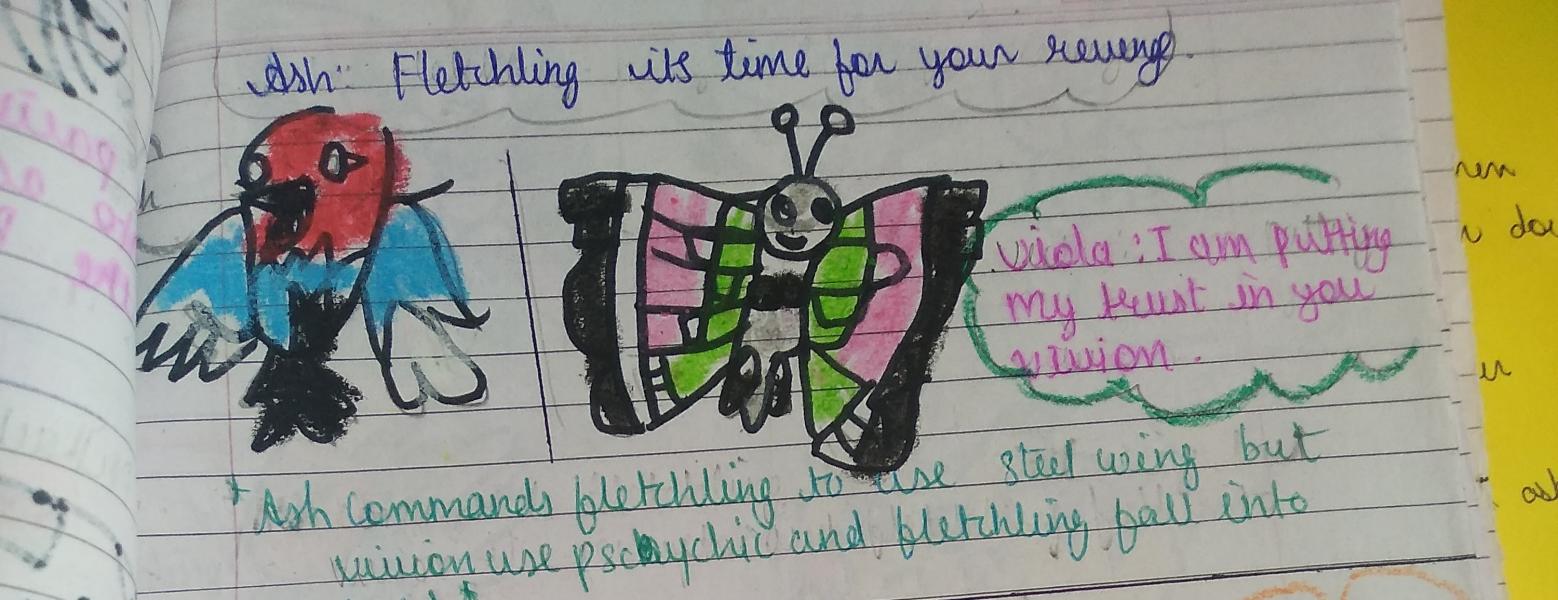 Ash: Fletchling its time for your reveng.
Viola: I am putting
my trust in you
vivion.
* Ash commands fletchling to use steel wing but
vivion use pschychic and fletchling fall into